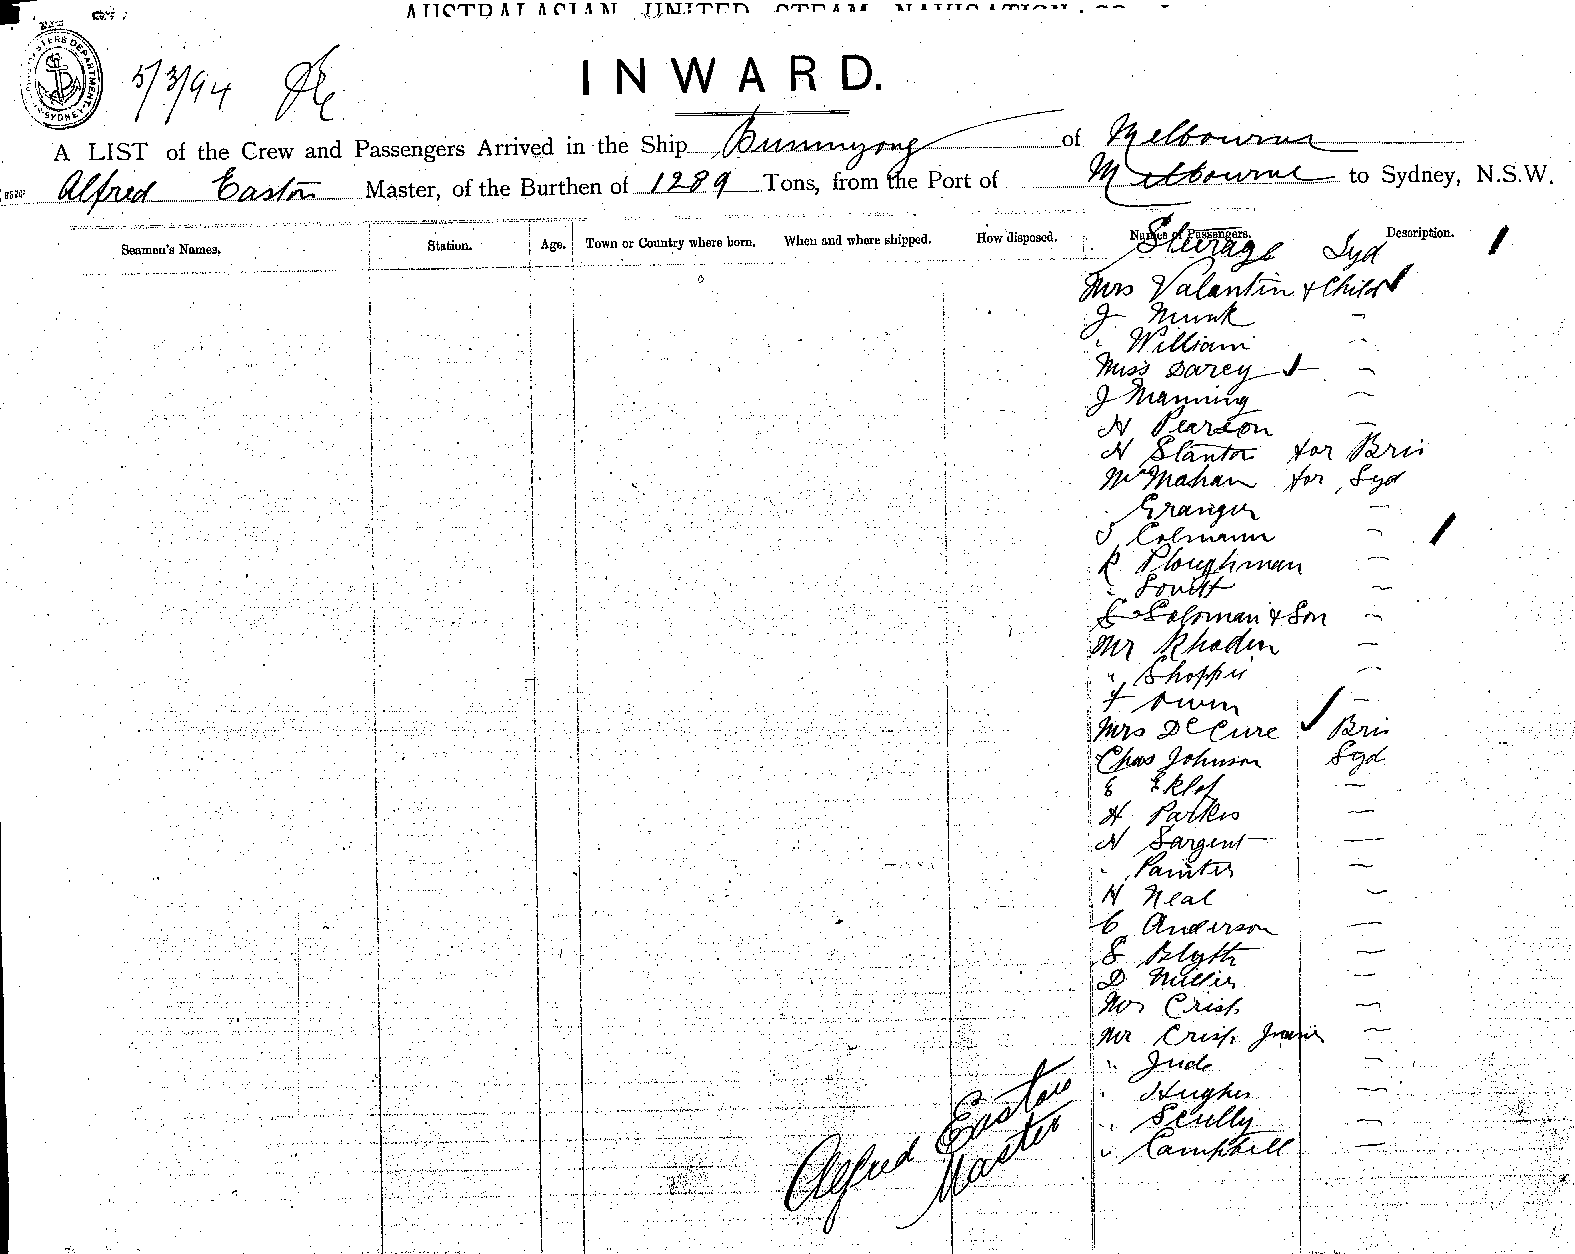 AUSTRALASIAN UNITED STEAM NAVIGATION CO
5/3/94
INWARD.
A LIST of the Crew and Passengers Arrived in the Ship Bunninyong of Melbourne
Alfred Easton Master, of the Burthen of 1289 Tons, from the Port of Melbourne to Sydney, N.S.W.
Seamen's Names. Station. Age. Town or Country where born. When and where shipped. How disposed. Names of Passengers. Description.
Steerage Syd
Mrs Valantin & Child
J Munk
" William
Miss Darcy
J Manning
H Pearson
H Stanton for Bris
McMahan for Syd
Granger
J Colmann
R Ploughman
" Lovett
E Soloman & Son
Mr Rhoden
"
F Owen
Mrs De Cure Bris
Chas Johnson Syd
E Eklof
H Parkes
H Sargent
" Painter
H Neal
C Anderson
S Blyth
D Miller
Mrs Crisp
Mr Crisp Junior
" Jude
" Hughes
" Scully
" Campbell
Alfred Easton
Master